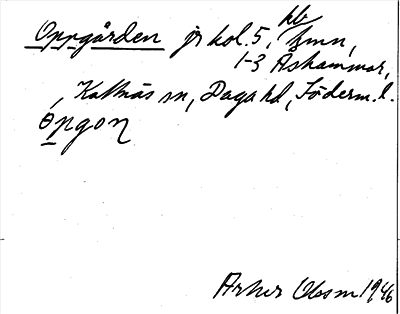 Oppgården jr kol. 5, hb
hmn,
1-3 Askammar,
, Kattnäs sn, Daga hd, Söderm. l.
öpgon
Arner Olsson 1946